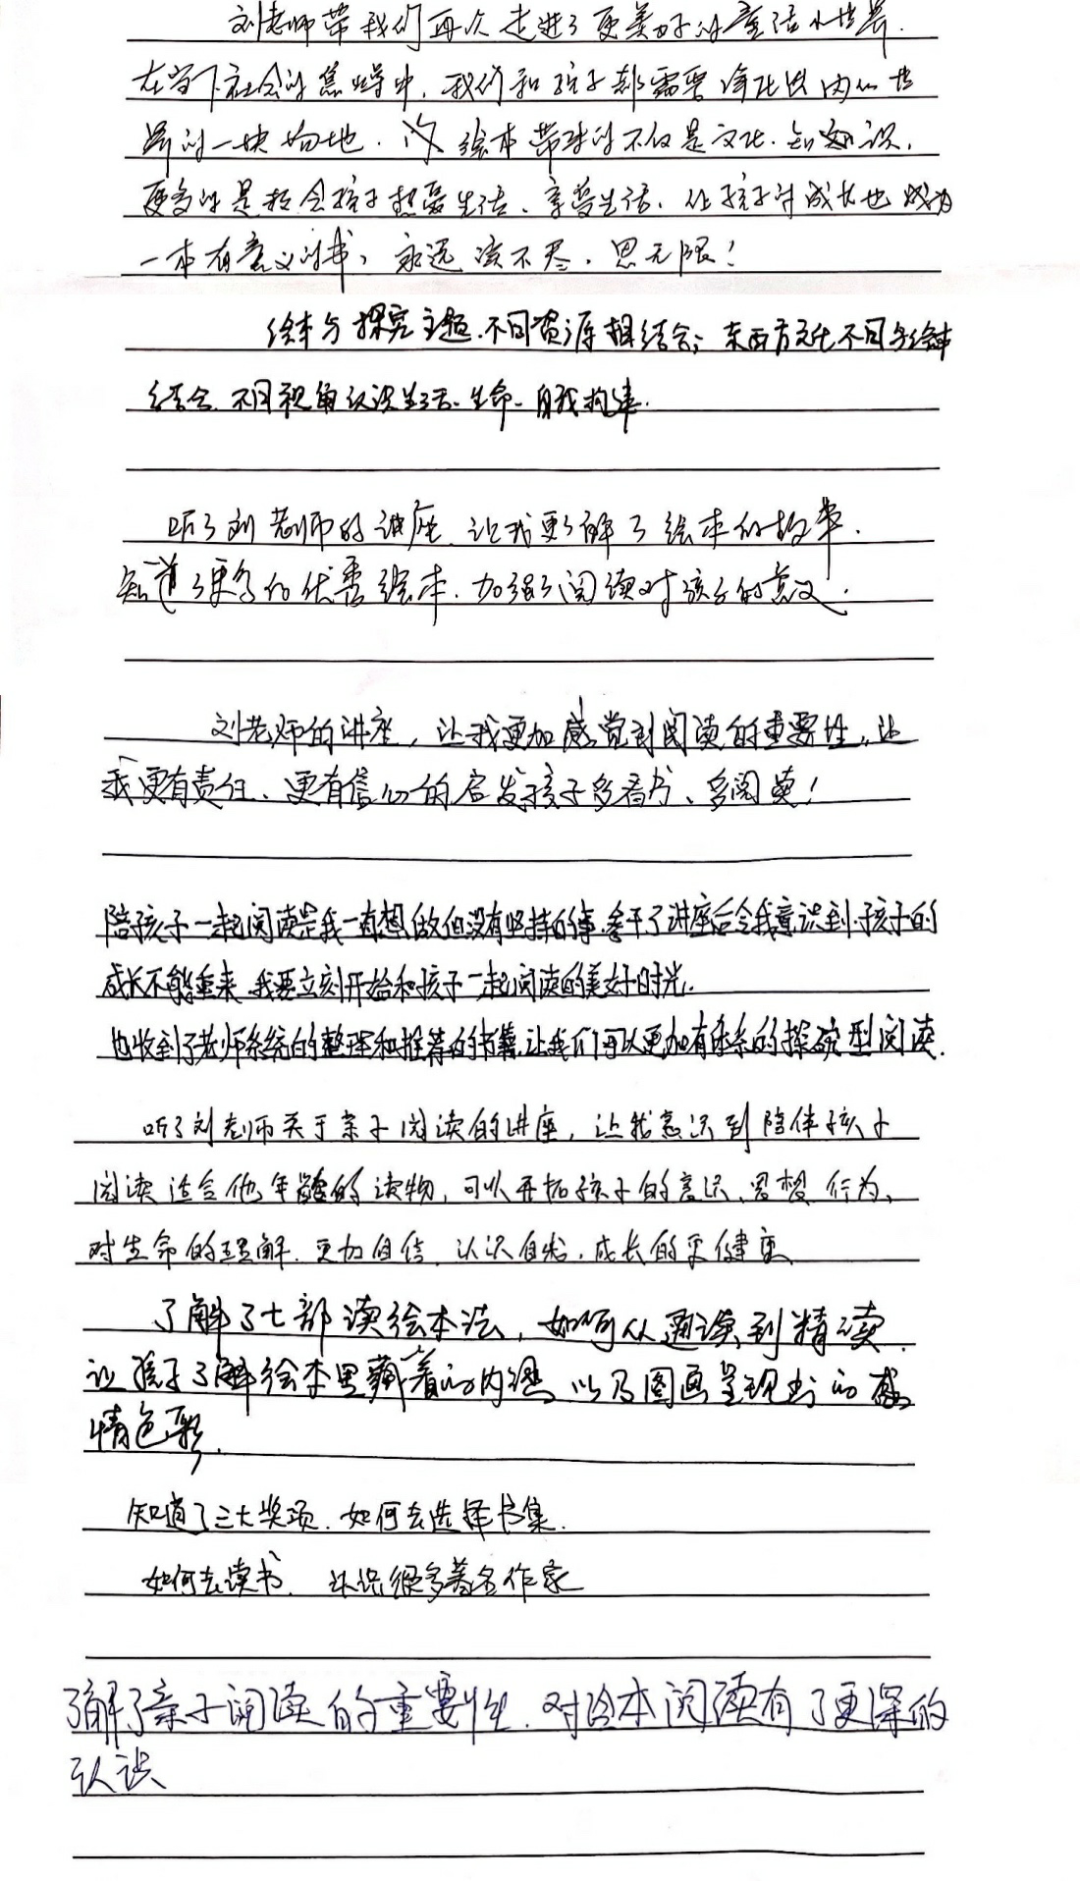 刘老师带我们再次走进了更美好的童话小世界.
在当下社会的焦噪中，我们和孩子都需要净化出内心世
界的一块场地. 绘本带来的不仅是文化.知识，
更多的是教会孩子热爱生活、享受生活，让孩子的成长也成为
一本有意义的书，永远读不尽，思无限！
绘本与探究主题.不同资源相结合；东西方文化不同绘本
结合.不同视角认识生活-生命-自我构建.
听了刘老师的讲座，让我更了解了绘本的故事.
知道了更多的优秀绘本.加强了阅读对孩子的意义.
刘老师的讲座，让我更加感觉到阅读的重要性，让
我更有责任、更有信心的启发孩子多看书、多阅读！
陪孩子一起阅读是我一直想做但没有坚持的事.参于了讲座后令我意识到孩子的
成长不能重来.我要立刻开始和孩子一起阅读的美好时光.
也收到了老师系统的整理和推荐的书籍.让我们可以更加有体系的探究型阅读.
听了刘老师关于亲子阅读的讲座，让我意识到陪伴孩子
阅读适合他年龄的读物，可以开拓孩子的意识、思想、行为、
对生命的理解.更加自信.认识自我.成长的更健康
了解了七部读绘本法，如何从通读到精读.
让孩子了解绘本里藏着的内涵，以及图画呈现出的感
情色彩.
知道了三大奖项.如何去选择书集.
如何去读书. 认识很多著名作家
了解了亲子阅读的重要性.对绘本阅读有了更深的
认识